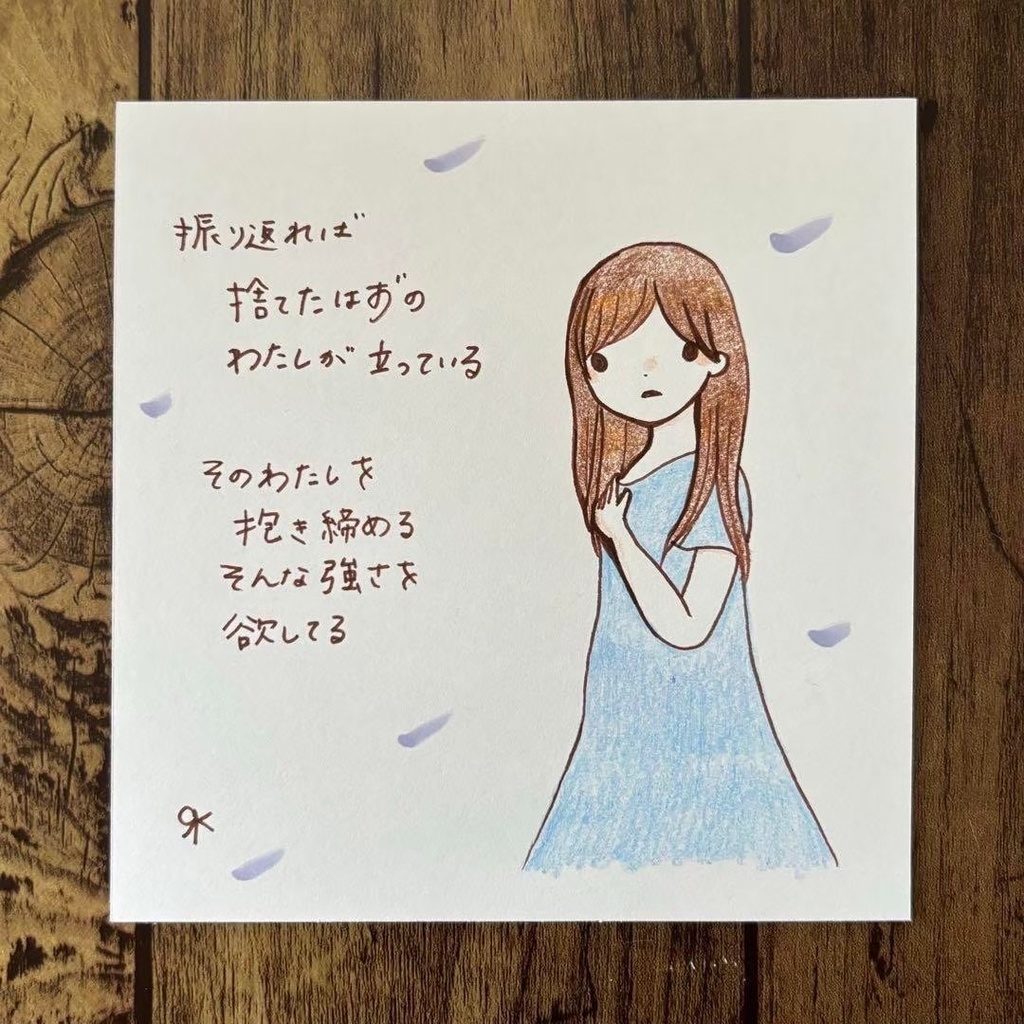 振り返れば
捨てたはずの
わたしが立っている
そのわたしを
抱き締める
そんな強さを
欲してる